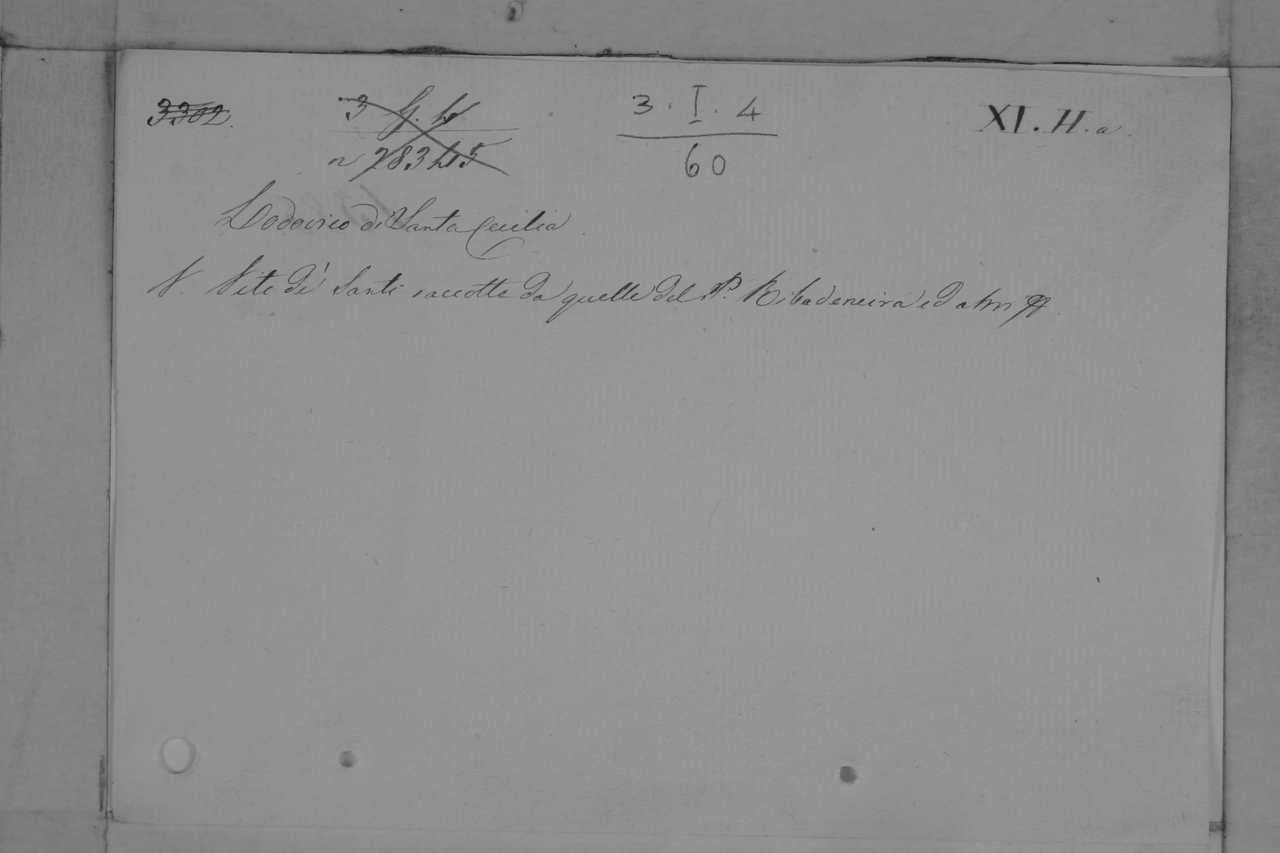 3302. 3 G. 6 3 . I . 4 XI . H . a .
n 283 60
Lodovico di Santa Cecilia .
V. Vite de' Santi raccolte da quelle del P. Ribadeneira ed altri